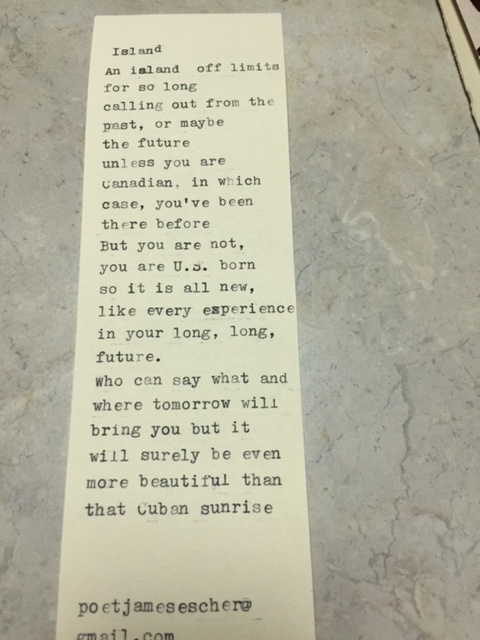 Island
An island off limits
for so long
calling out from the
past, or maybe
the future
unless you are
Canadian, in which
case, you've been
there before
But you are not,
you are U.S. born
so it is all new,
like every experience
in your long, long,
future.
Who can say what and
where tomorrow will
bring you but it
will surely be even
more beautiful than
that Cuban sunrise
poetjamesescher@
gmail.com